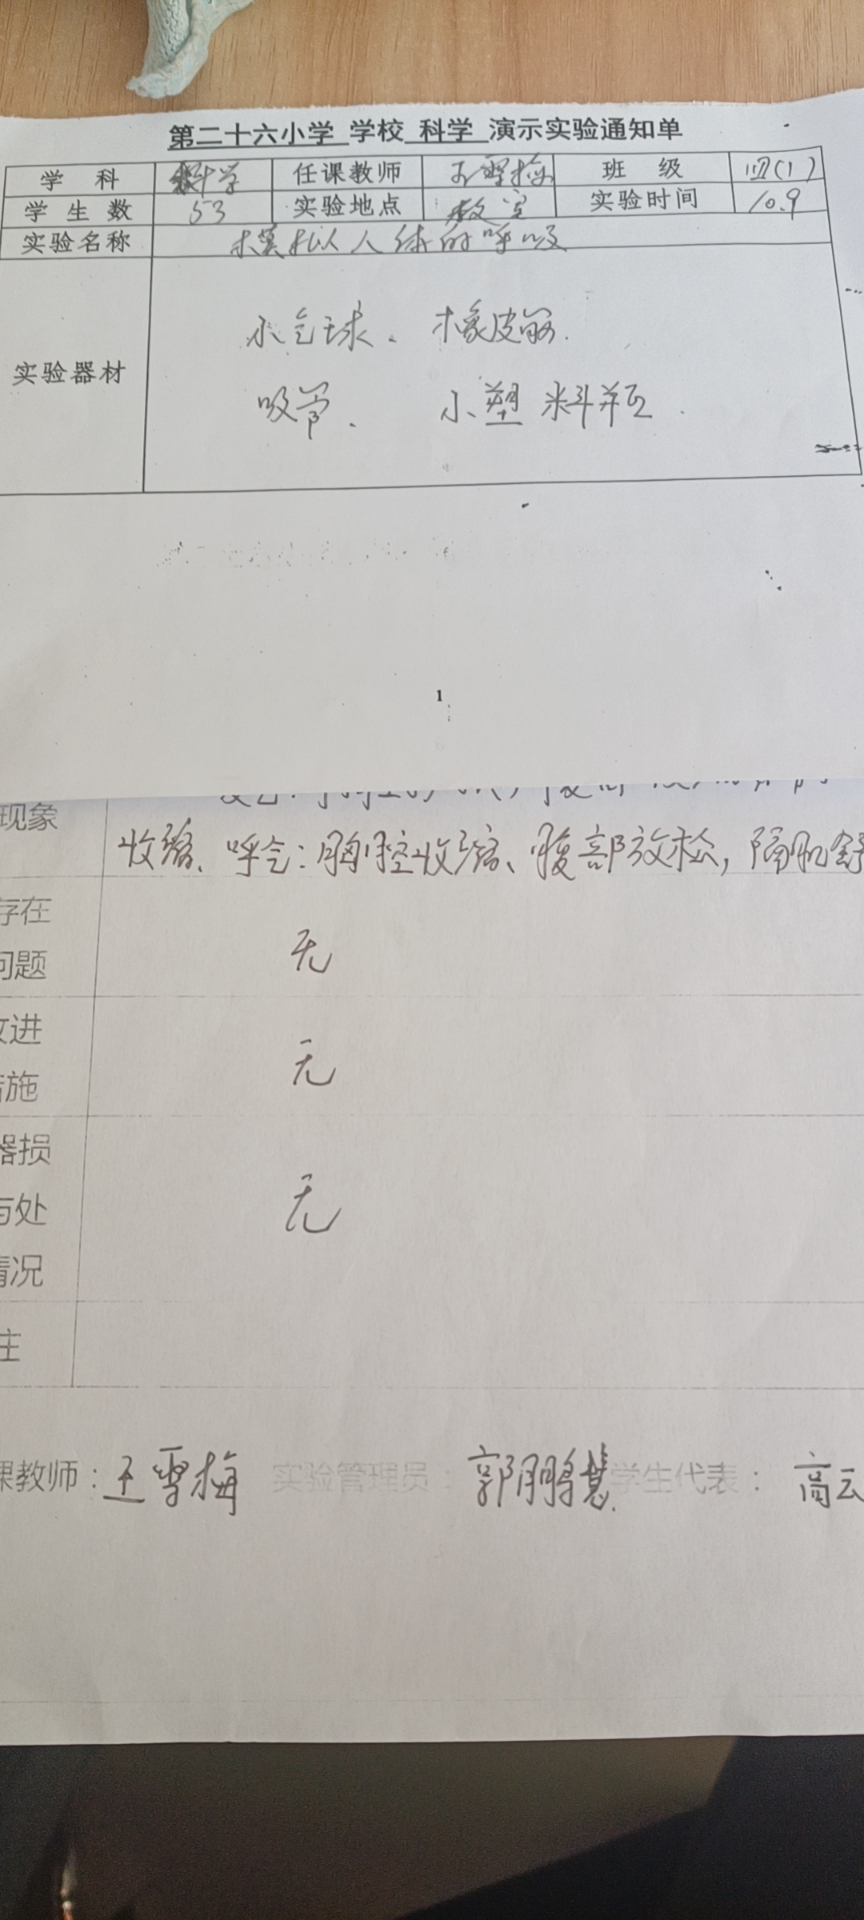 第二十六小学 学校 科学 演示实验通知单
学科 科学 任课教师 王雪梅 班级 四(1)
学生数 53 实验地点 教室 实验时间 10.9
实验名称 模拟人体的呼吸
实验器材
小气球、橡皮筋.
吸管、小塑料瓶.
1
现象
收缩、呼气:胸腔收缩、腹部放松,隔肌舒
存在
问题
无
改进
措施
无
器损
与处
情况
无
注
课教师:王雪梅 实验管理员: 郭鹏慧 学生代表: 高云